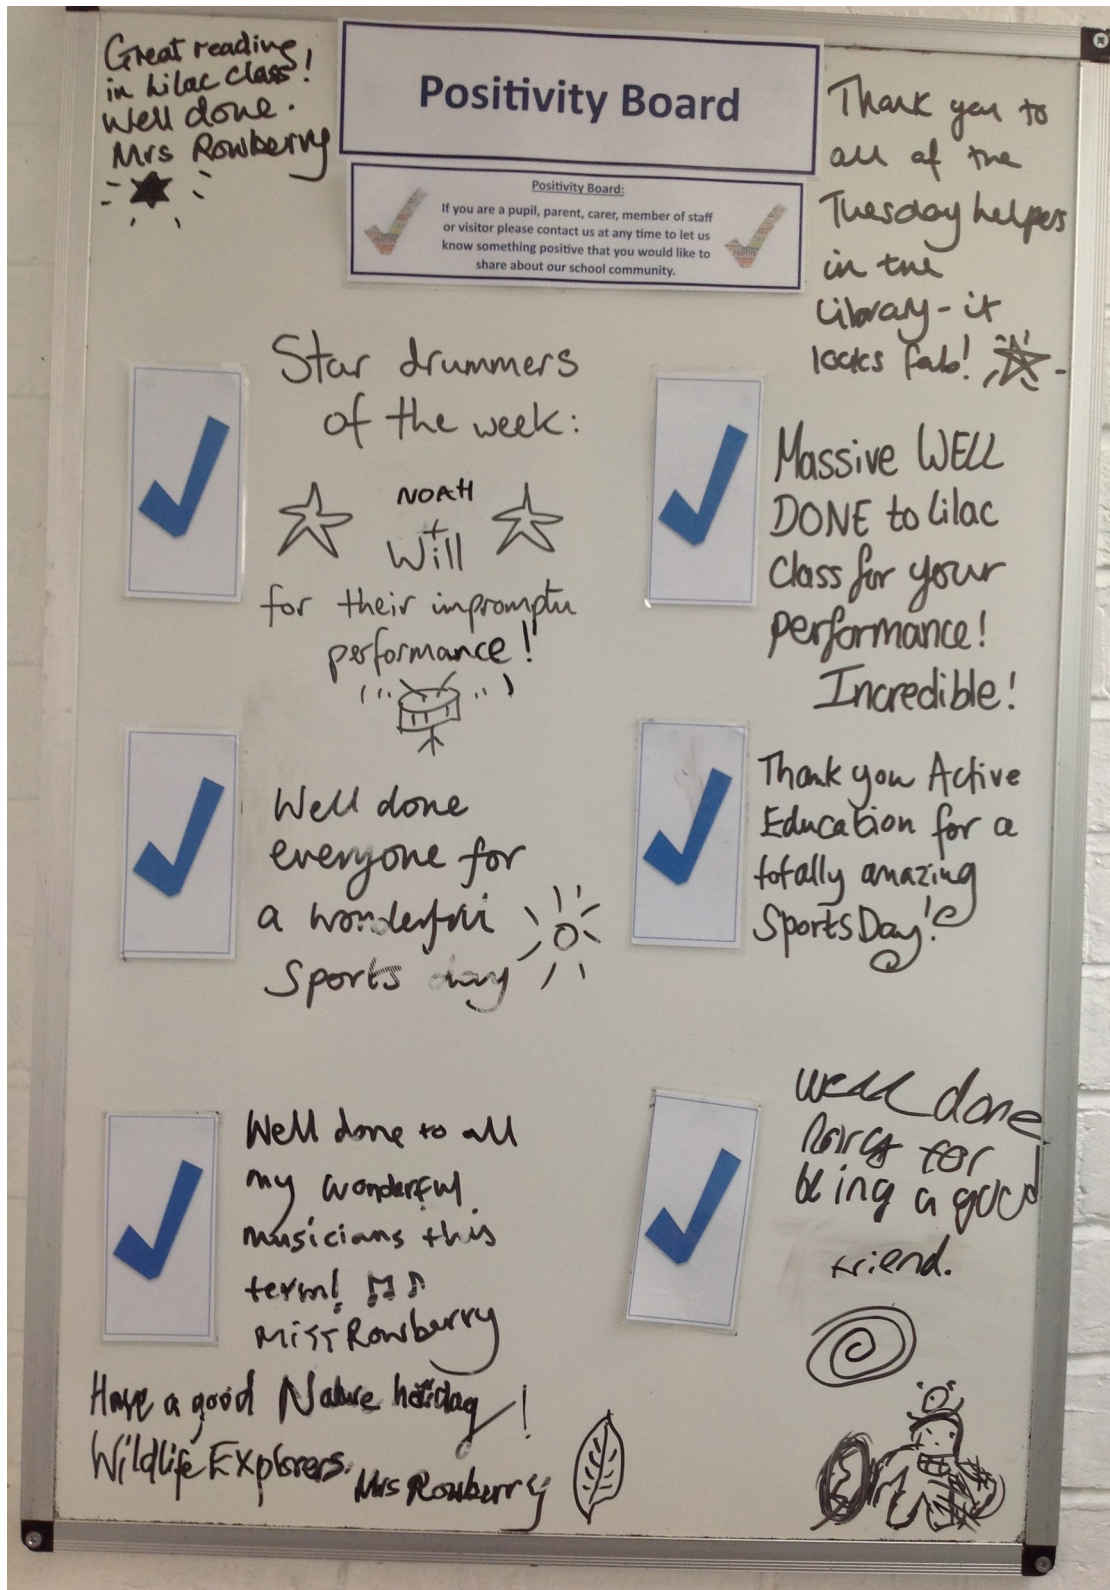 Great reading
in Lilac Class!
Well done.
Mrs Rowberry
Positivity Board
Positivity Board:
If you are a pupil, parent, carer, member of staff
or visitor please contact us at any time to let us
know something positive that you would like to
share about our school community.
Thank you to
all of the
Tuesday helpers
in the
Library - it
looks fab!
Star drummers
of the week:
NOAH
+
Will
for their impromptu
performance!
Massive WELL
DONE to Lilac
Class for your
performance!
Incredible!
Well done
everyone for
a wonderful
Sports day
Thank you Active
Education for a
totally amazing
Sports Day!
Well done to all
my wonderful
musicians this
term!
Miss Rowberry
well done
for
being a good
friend.
Have a good Nature holiday!
Wildlife Explorers.
Mrs Rowberry